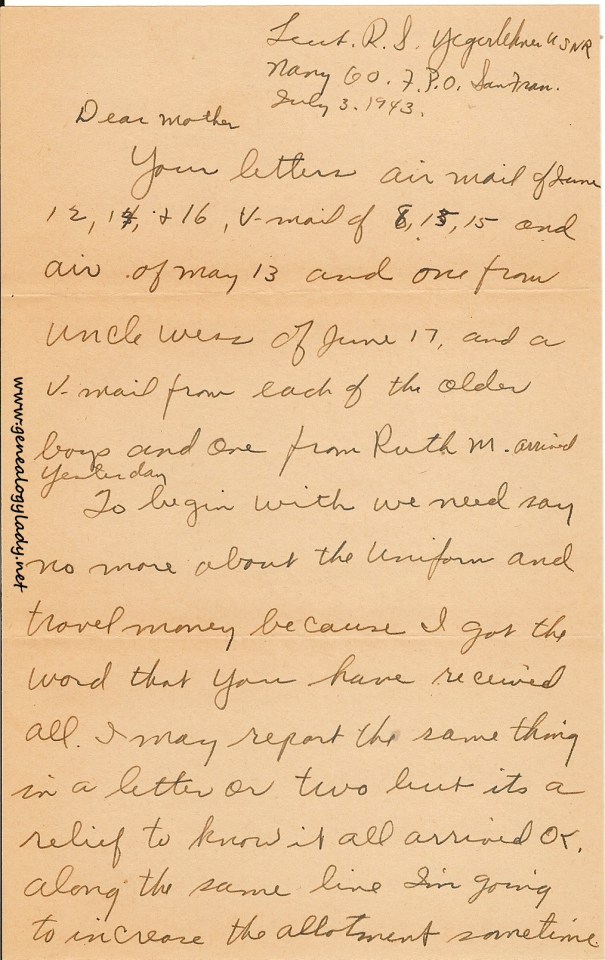 Lieut. R. S. Yegerlehner USNR
Navy 60. F.P.O. San Fran.
July 3. 1943.
Dear Mother
Your letters air mail of June
12, 14, + 16, V-mail of 8, 13, 15 and
air of may 13 and one from
Uncle Wess of June 17, and a
V-mail from each of the older
boys and one from Ruth M. arrived
yesterday
To begin with we need say
no more about the uniform and
travel money because I got the
word that you have received
all. I may report the same thing
in a letter or two but its a
relief to know it all arrived OK.
along the same line I'm going
to increase the allotment sometime
www.genealogylady.net